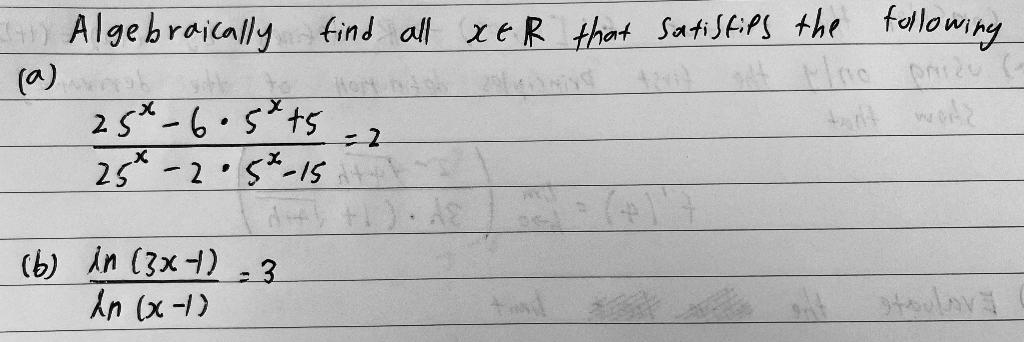 Algebraically find all x ∈ R that satisfies the following
(a)
25^x - 6 · 5^x + 5
= 2
25^x - 2 · 5^x - 15
(b) ln (3x-1)
= 3
ln (x-1)